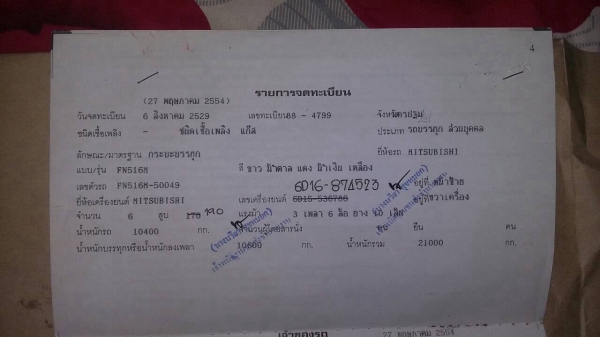 4
รายการจดทะเบียน
(27 พฤษภาคม 2554)
วันจดทะเบียน 6 สิงหาคม 2529 เลขทะเบียน 88 - 4799 จังหวัด นครปฐม
ชนิดเชื้อเพลิง - ชนิดเชื้อเพลิง แก๊ส ประเภท รถบรรทุก ส่วนบุคคล
ลักษณะ/มาตรฐาน กระบะบรรทุก ยี่ห้อรถ MITSUBISHI
แบบ/รุ่น FN516M สี ขาว น้ำตาล แดง น้ำเงิน เหลือง
เลขตัวรถ FN516M-50049 6D16-874523 อยู่ที่ หน้าซ้าย
ยี่ห้อเครื่องยนต์ MITSUBISHI เลขเครื่องยนต์ 6D15-536786 อยู่ที่ ขวาเครื่อง
จำนวน 6 สูบ 170 190 แรงม้า 3 เพลา 6 ล้อ ยาง 10 เส้น
น้ำหนักรถ 10400 กก. จำนวนผู้โดยสารนั่ง ยืน คน
น้ำหนักบรรทุกหรือน้ำหนักลงเพลา 10600 กก. น้ำหนักรวม 21000 กก.
เจ้าของรถ
27 พฤษภาคม 2554